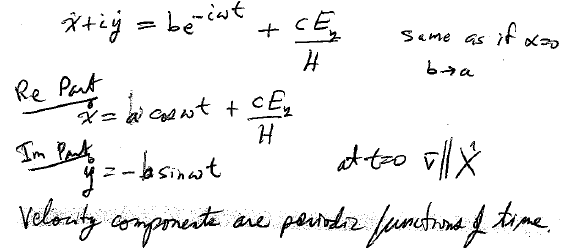 ẋ+iẏ = be^{-iωt} + cE_y/H same as if α=0
b→a
Re Part
ẋ = a cos ωt + cE_y/H
Im Part
ẏ = -a sin ωt at t=0 v̄ ∥ X̂
Velocity components are periodic functions of time.